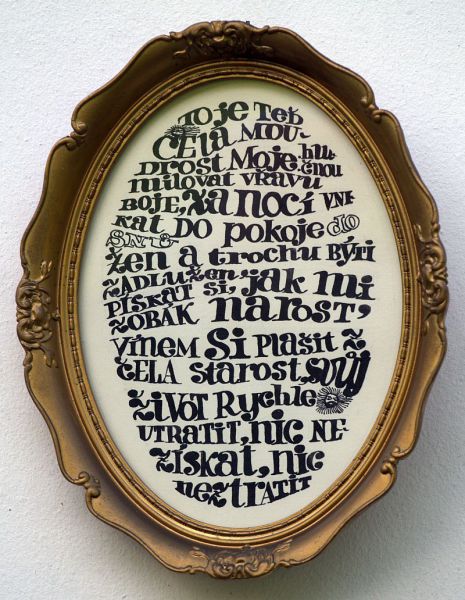 To je Teď
CELÁ MOU-
DROST MOJE: hlu-
milovat vřavu čnou
BOJE, Za NOCÍ VNI-
KAT DO POKOJE do
SNŮ
žEN a trochu BÝTI
ZADLUžEN,
PÍSKAT SI, jak mi
ZOBÁK NAROST,
VÍNEM SI PLAŠIT Z
ČELA STAROST, SVŮJ
žIVOT RYCHLE
UTRATIT, NIC NE-
ZÍSKAT, NIC
NEZTRATIT